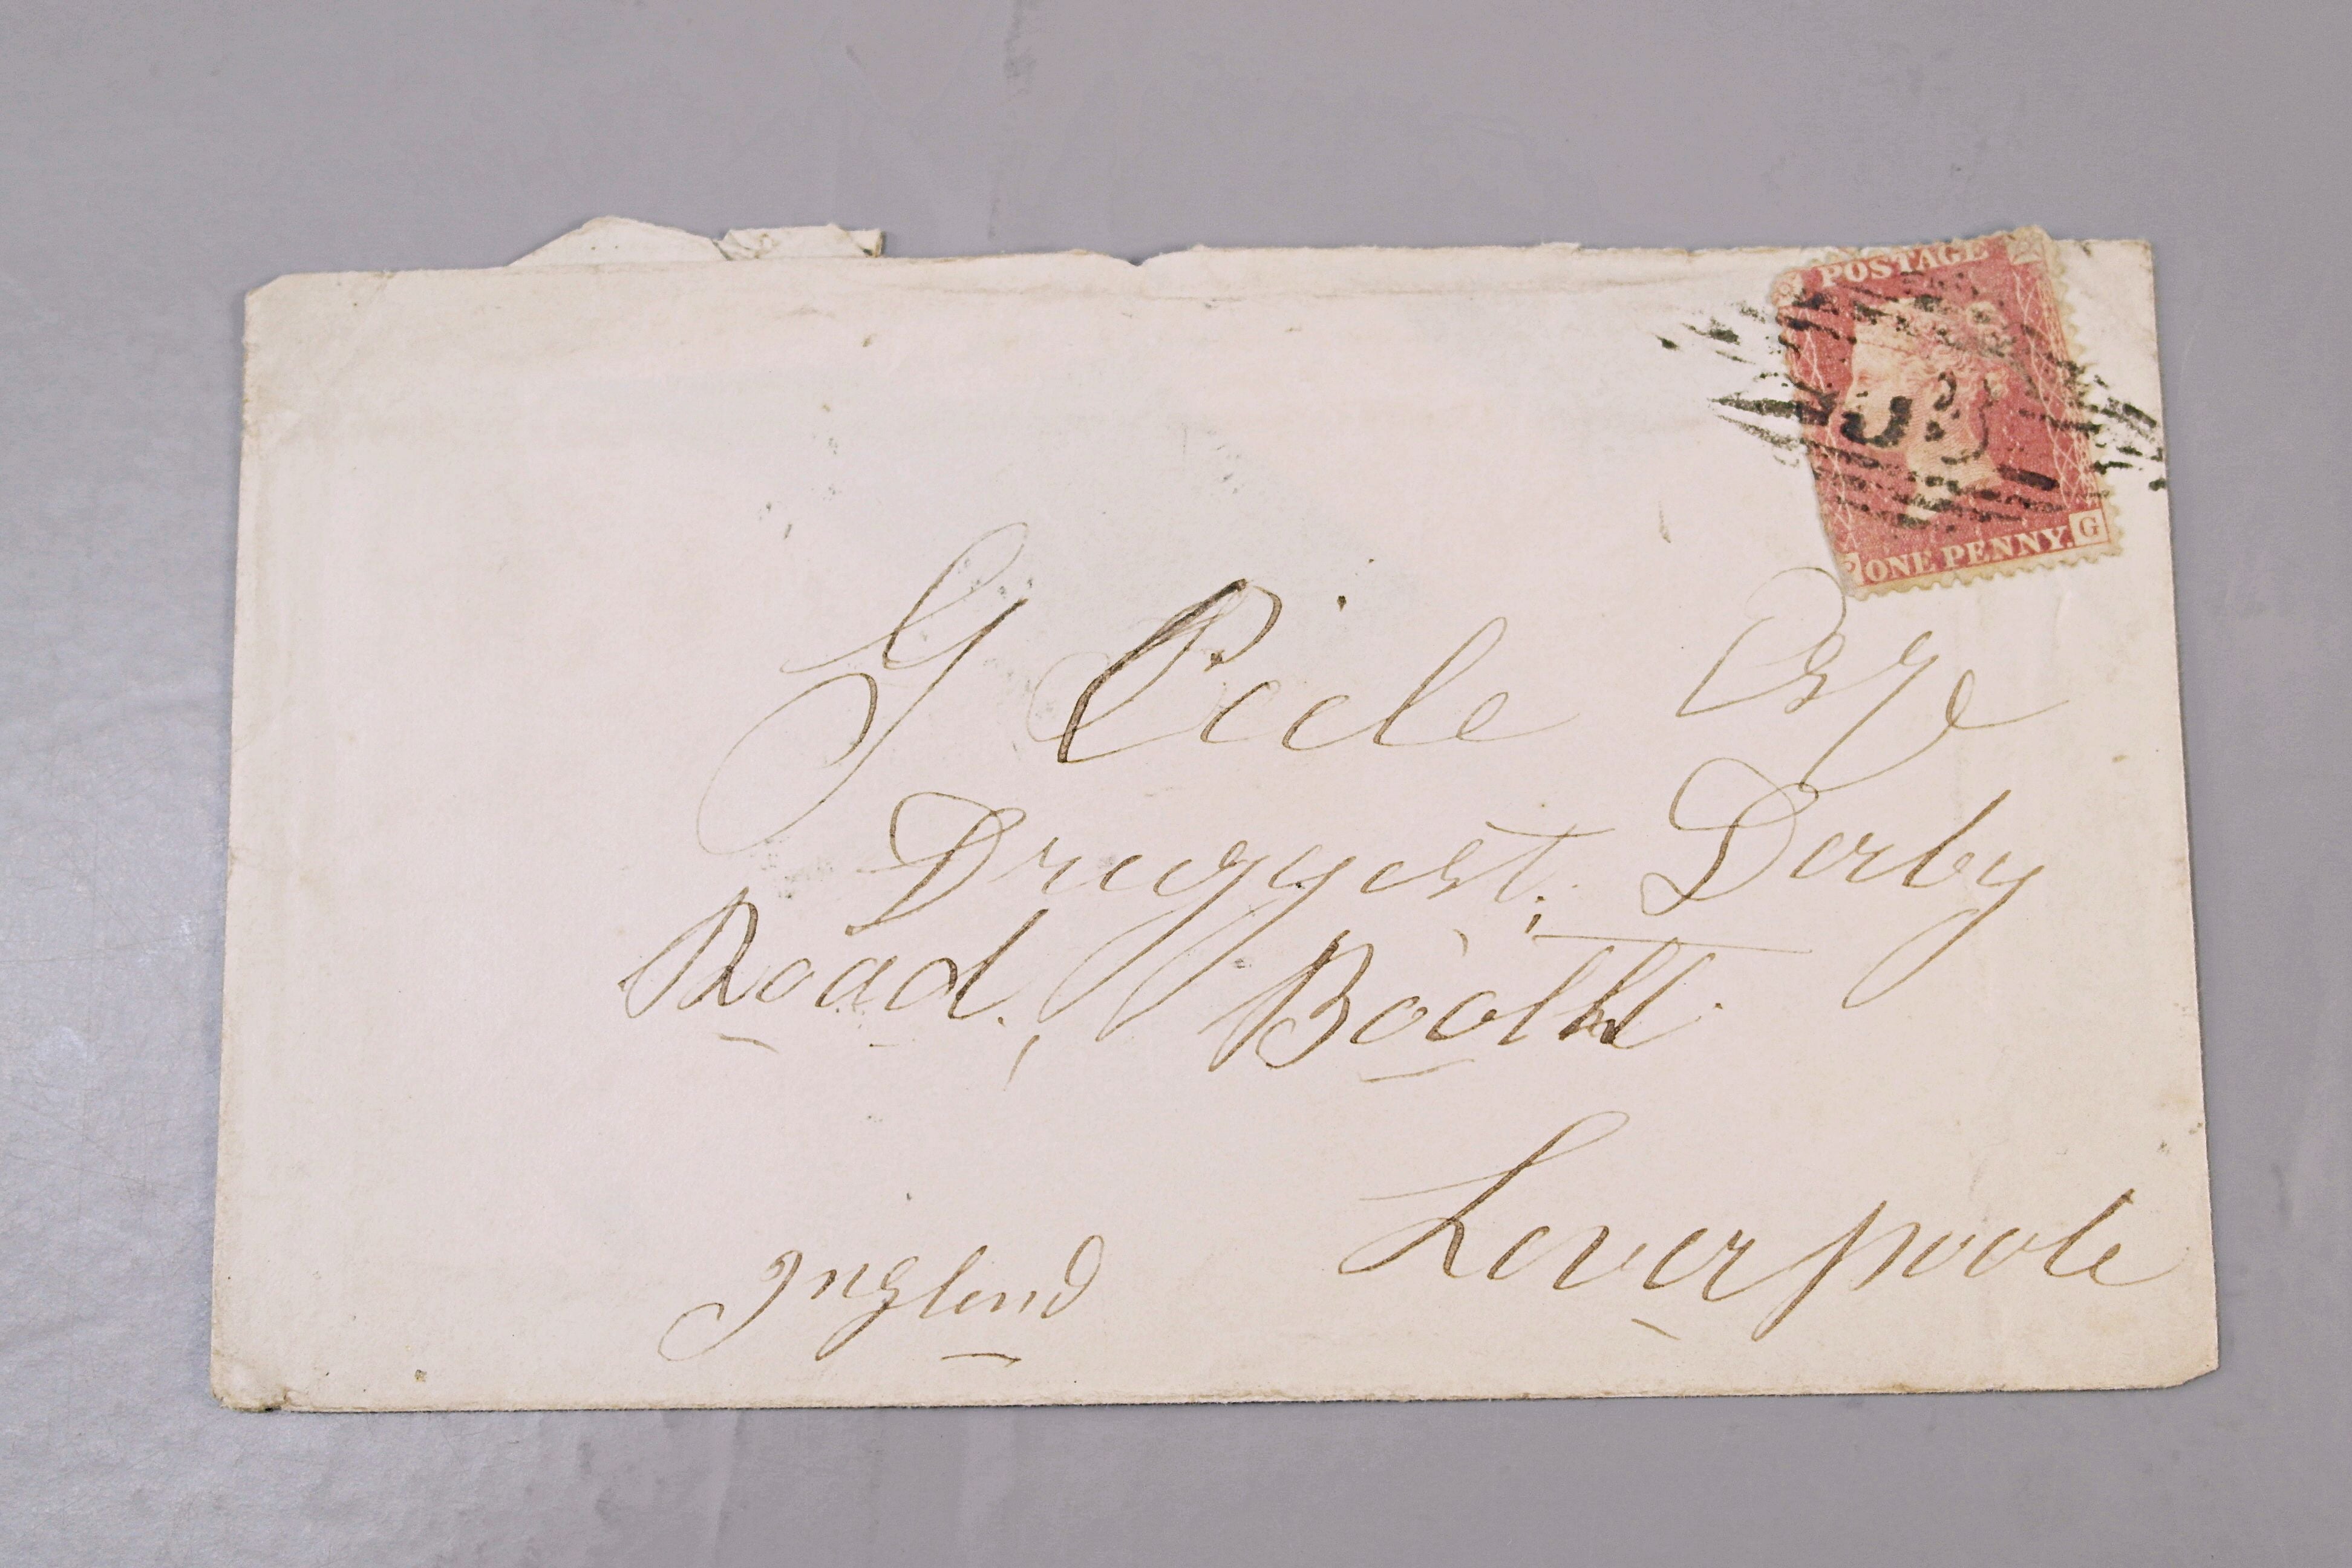 POSTAGE
ONE PENNY.
G
G Peele Esqe
Druggest, Derby
Road, Booth
Leverpoole
Ingland